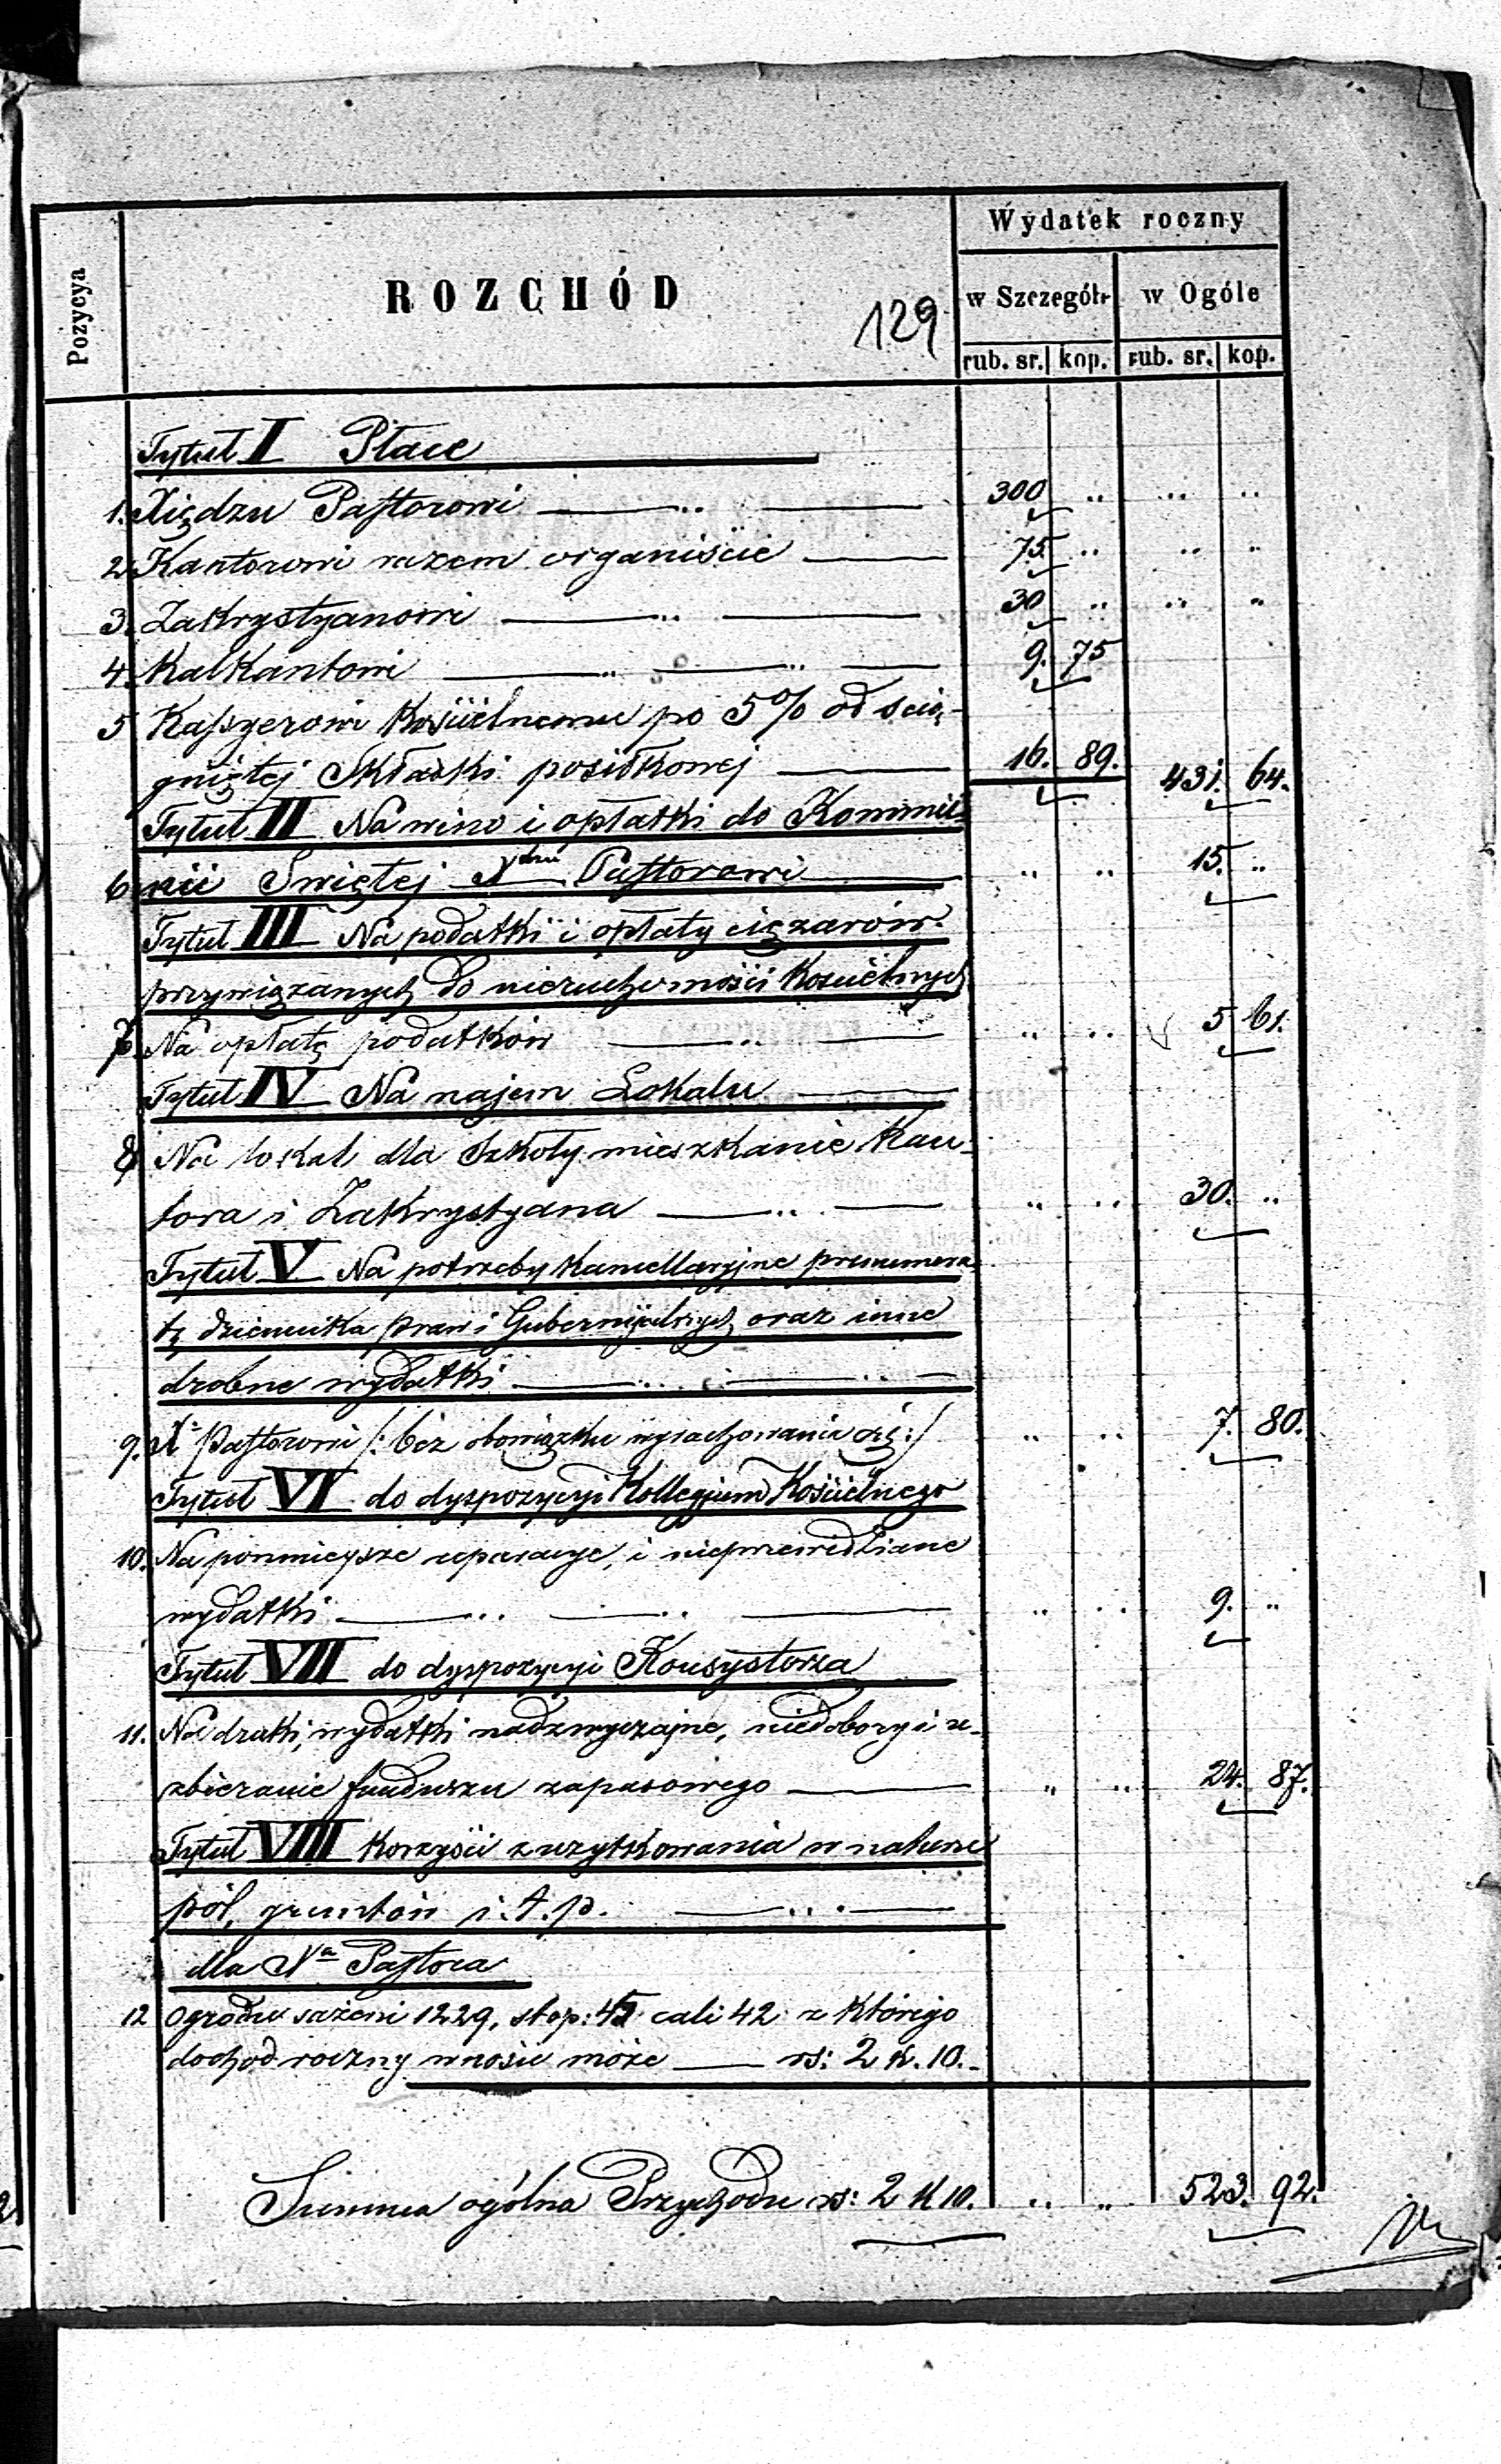 Pozycya
ROZCHÓD
129
Wydatek roczny
w Szczególe w Ogóle
rub. sr. kop. rub. sr. kop.
Tytuł I Płace
1. Xiędzu Pastorowi 300 " " "
2. Kantorowi razem organiście 75. " " "
3. Zakrystyanowi 30 " " "
4. Kalkantowi 9. 75
5 Kassyerowi Kościelnemu po 5% od scią-
gniętej Składki posiłkowej 16. 89. 431. 64.
Tytuł II Na wino i opłatki do Kommu-
6 nii Swiętej X dzu Pastorowi " " 15. "
Tytuł III Na podatki i opłaty ciężarów
przywiązanych do nieruchomości Kościelnych
7. Na opłatę podatków " " 5 61.
Tytuł IV Na najem Lokalu
8 Na lokal dla Szkoły mieszkanie Kan-
tora i Zakrystyana " " 30. "
Tytuł V Na potrzeby Kancellaryjne prenumera-
tę dziennika praw i Gubernijalnych oraz inne
drobne wydatki
9. X: Pastorowi /: bez obowiązku wyrachowania się :/ " " 7. 80.
Tytuł VI do dyspozycyi Kollegium Kościelnego
10. Na pomniejsze reparacye, i nieprzewidziane
wydatki " " 9. "
Tytuł VII do dyspozycyi Konsystorza
11. Na druki, wydatki nadzwyczajne, niedobory i u-
zbieranie funduszu zapasowego " " 24. 87.
Tytuł VIII Korzyści z użytkowania w naturze
pól, gruntów i. t. p.
dla Xa Pastora
12 Ogrodu sażeni 1229, stop: 45 cali 42 z którego
dochod roczny wnosić może rs: 2 k. 10.
Summa ogólna Przychodu rs: 2 K 10. " " 523. 92.